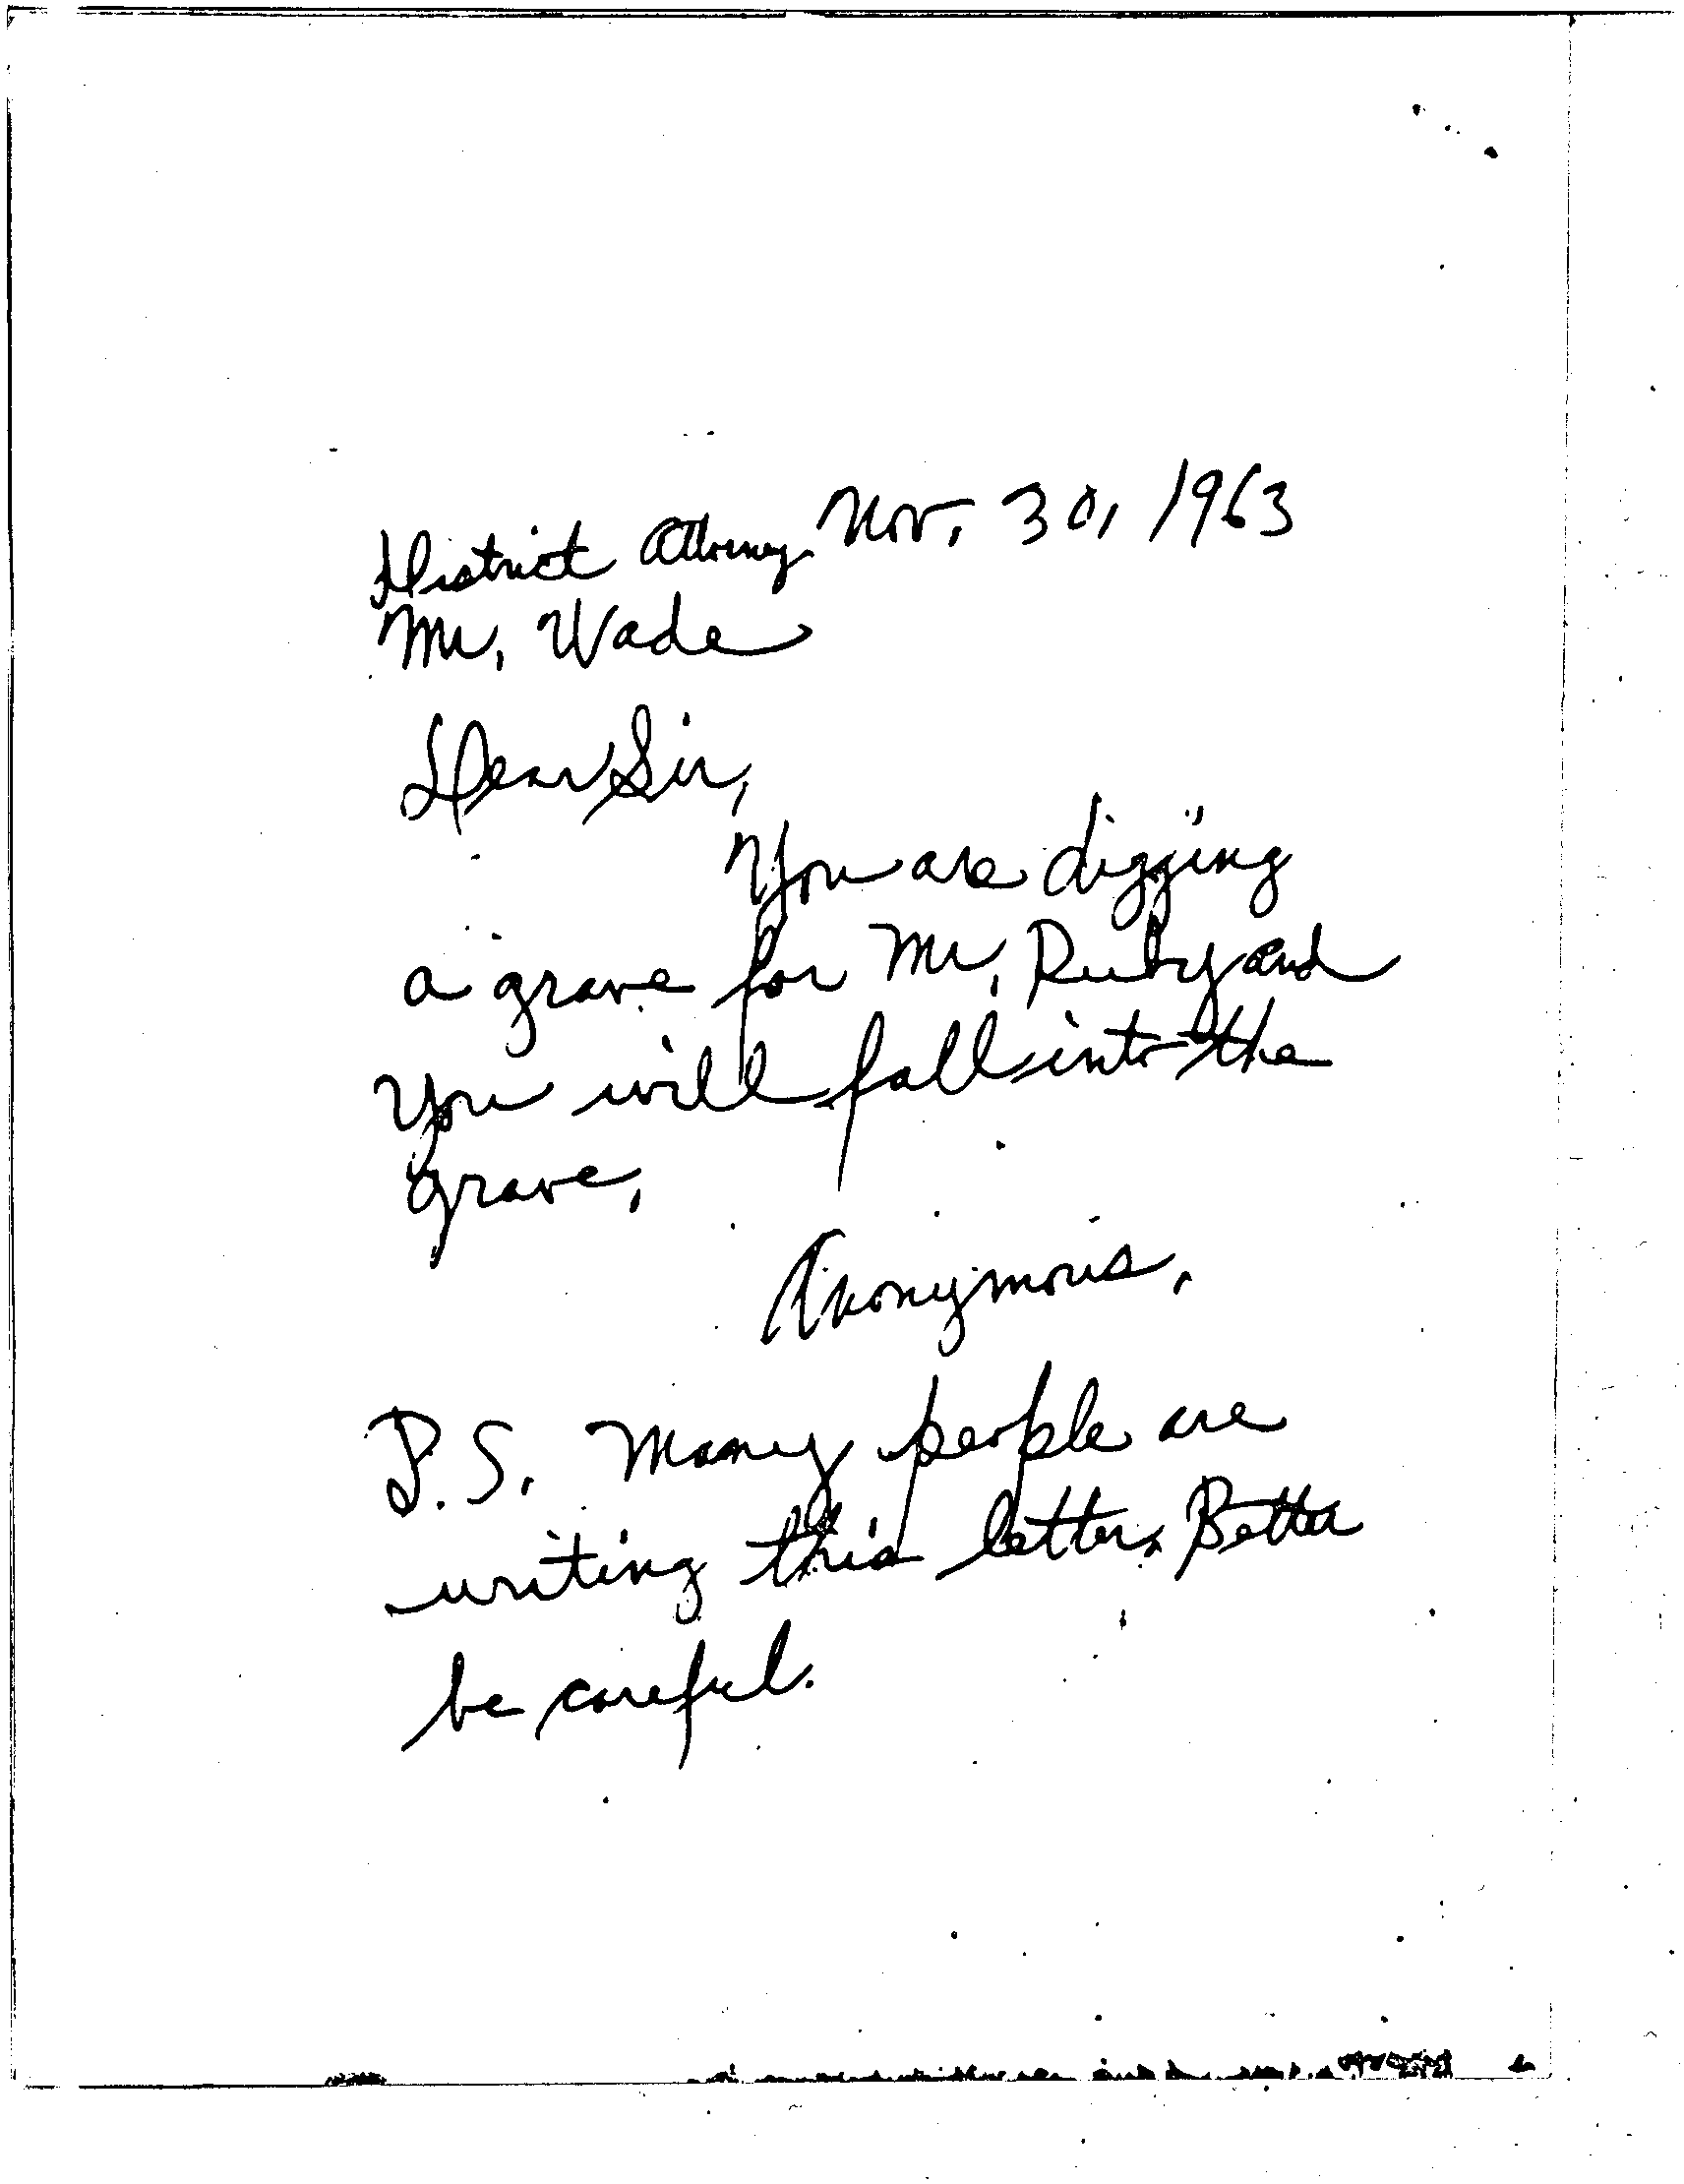 District Attorney Nov. 30, 1963
Mr. Wade
Dear Sir,
You are digging
a grave for Mr. Ruby and
you will fall into the
grave.
Anonymous.
P.S. Many people are
writing this letter. Better
be careful.